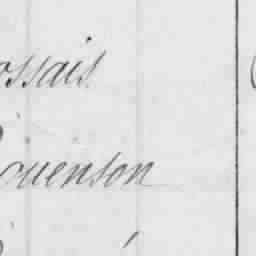 ossais
ouenson